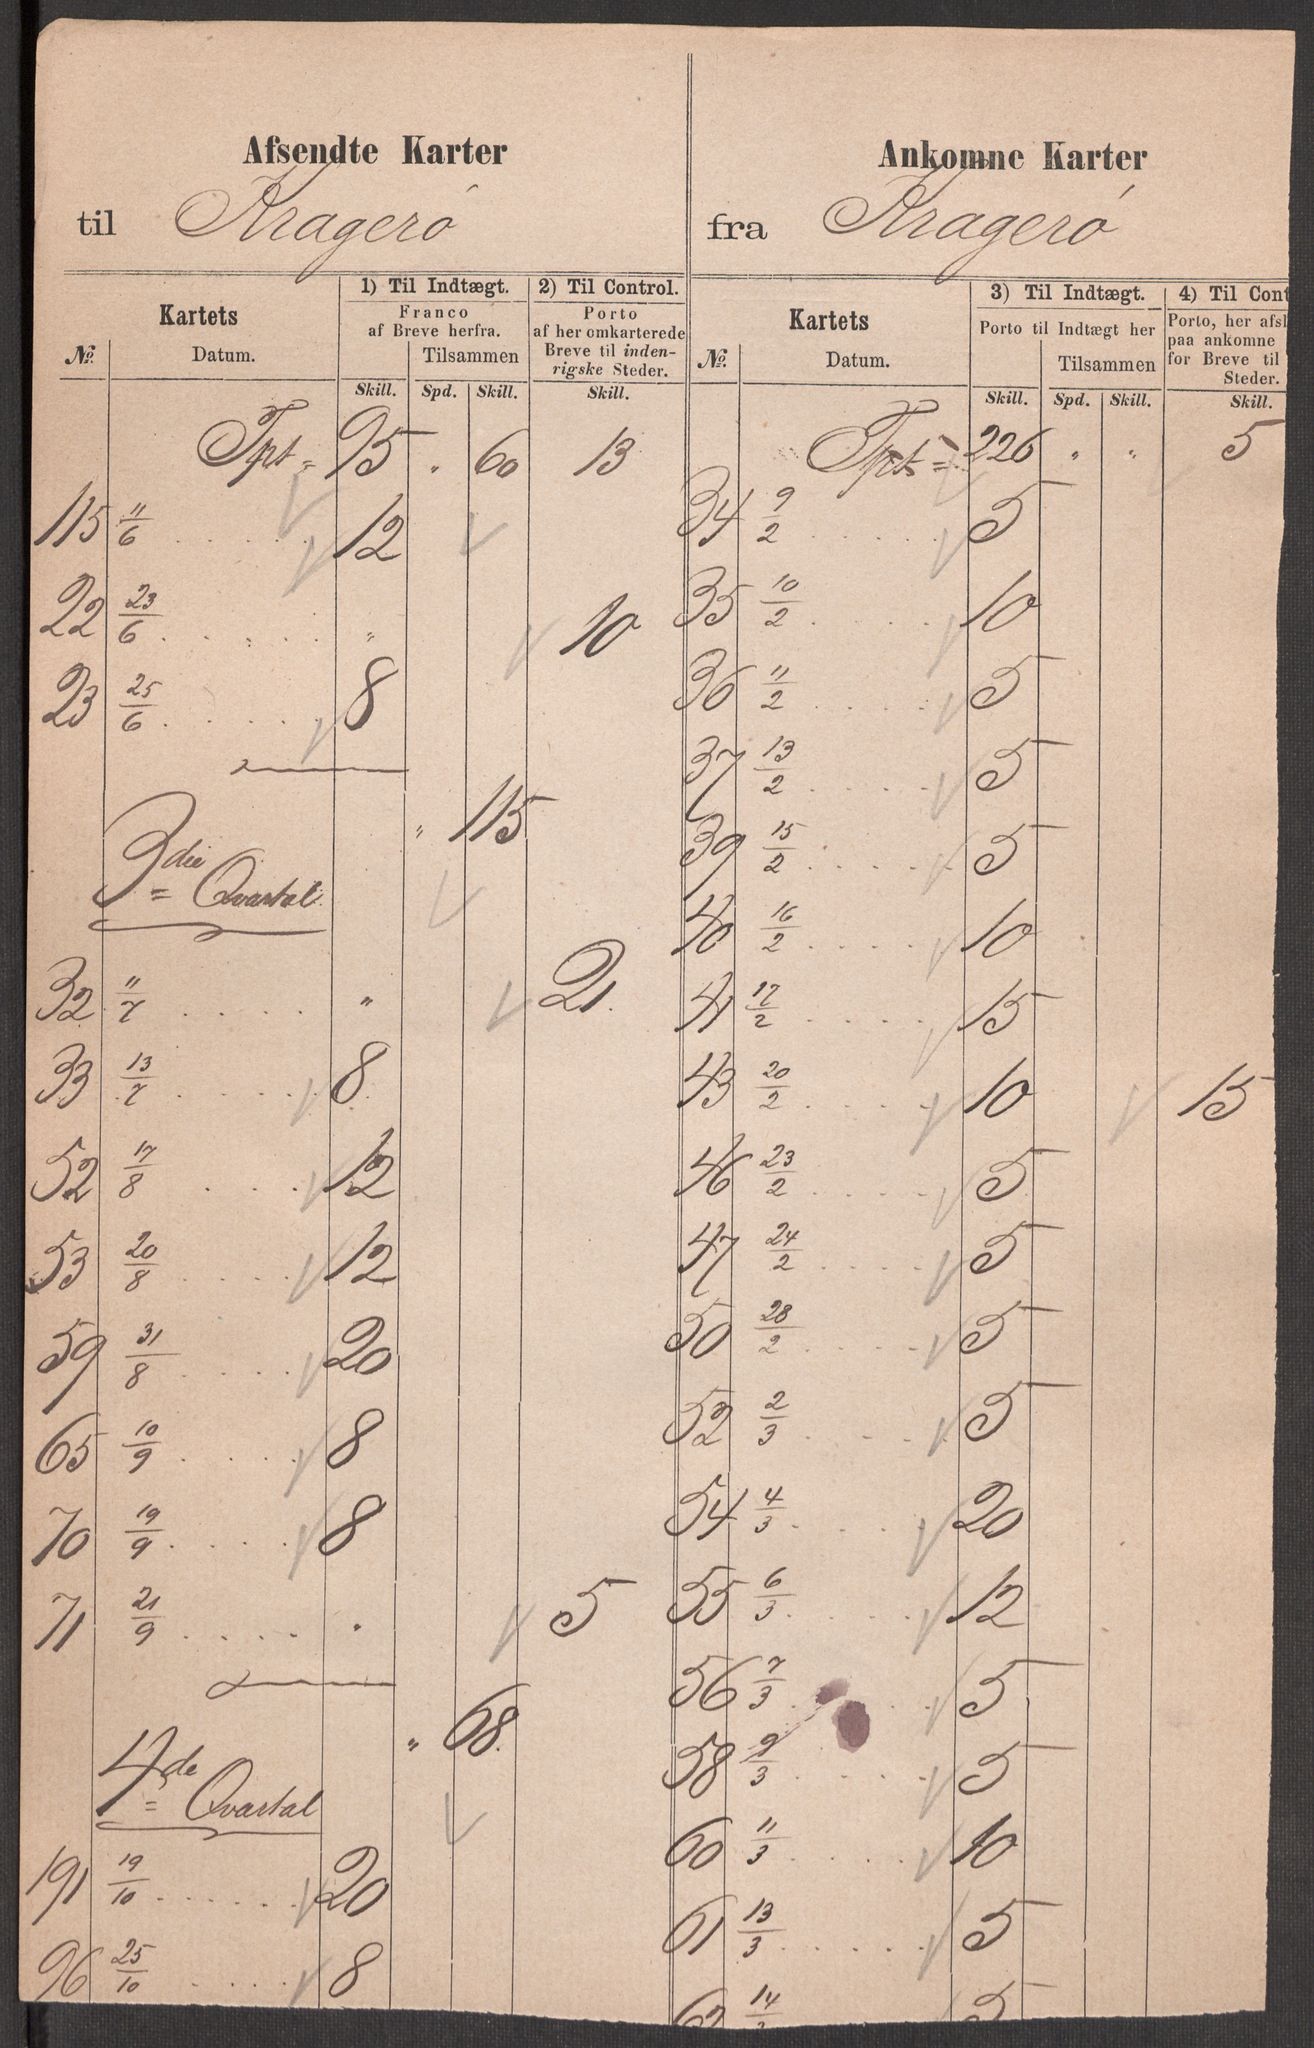 Afsendte Karter
til Kragerö
Kartets
No. Datum.
1) Til Indtægt.
Franco
af Breve herfra.
Tilsammen
Skill. Spd. Skill.
2) Til Control.
Porto
af her omkarterede
Breve til inden-
rigske Steder.
Skill.
Tpt = 95 " 60 13
115 11/6 . . . . . 12
22 23/6 . . . . . " 10
23 25/6 . . . . . 8
" 115
3die Qvartal
32 11/7 . . . . . " 21.
33 13/7 . . . . . 8
52 17/8 . . . . 12
53 20/8 . . . . 12
59 31/8 . . . . 20
65 10/9 . . . . 8
70 19/9 . . . . 8
71 21/9 . . . . . 5
" 68.
4de Qvartal
191 19/10 . . . . . 20
96 25/10 . . . . 8
Ankomne Karter
fra Kragerö
Kartets
No. Datum.
3) Til Indtægt.
Porto til Indtægt her
Tilsammen
Skill. Spd. Skill.
4) Til Cont
Porto, her afsl
paa ankomne
for Breve til
Steder.
Skill.
Tpt = 226 " " 5
34 9/2 . . . . . 5
35 10/2 . . . . 10
36 11/2 . . . . 5
37 13/2 . . . . 5
39 15/2 . . . . 5
40 16/2 . . . . 10
41 17/2 . . . . 15
43 20/2 . . . . 10 15
46 23/2 . . . . 5
47 24/2 . . . . 5
50 28/2 . . . . 5
52 2/3 . . . . 5
54 4/3 . . . . 20
55 6/3 . . . . 12
56 7/3 . . . . 5
58 9/3 . . . . 5
60 11/3 . . . . 10
61 13/3 . . . . . 5
62 14/3 5